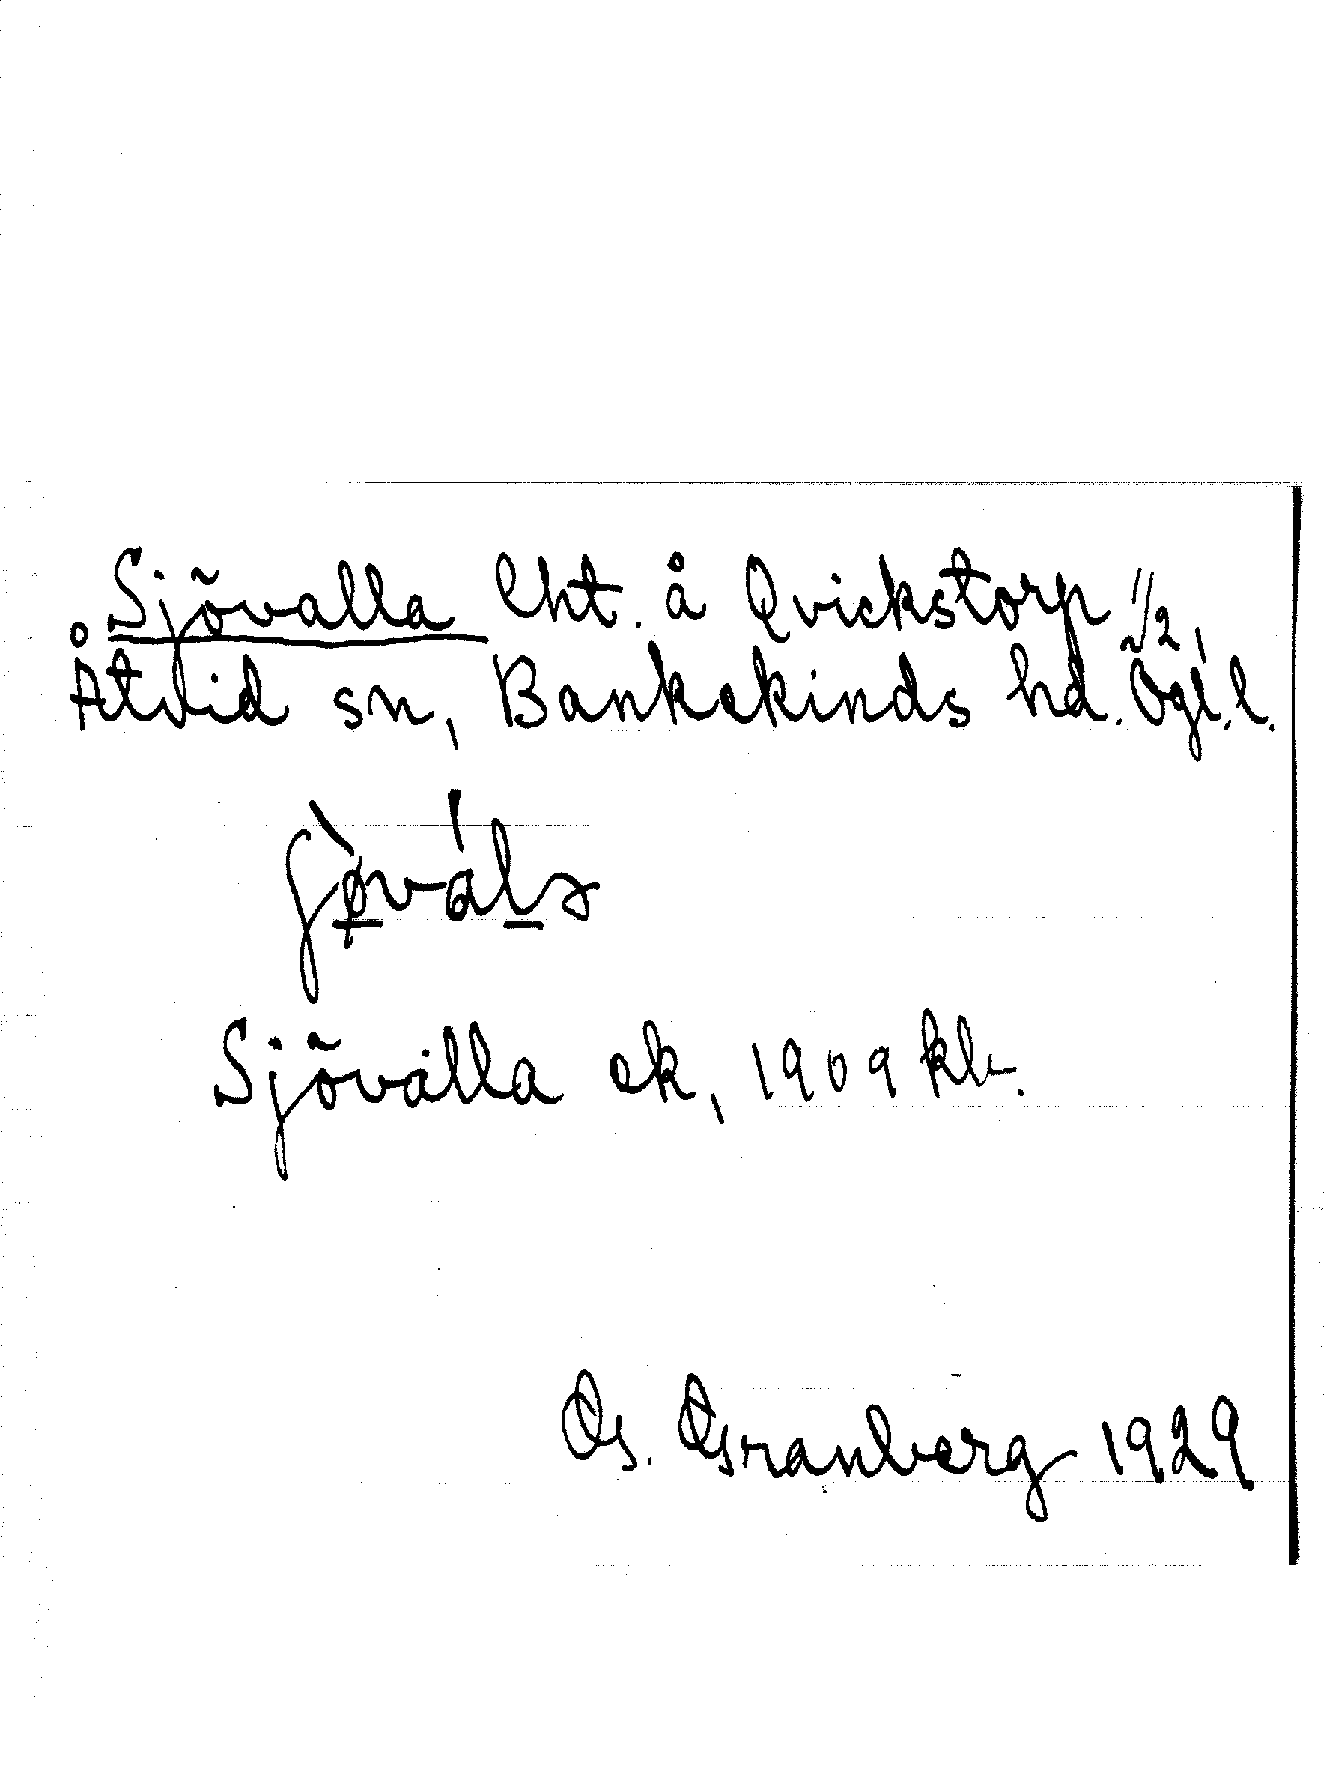 Sjövalla lht. å Qvickstorp 1/2,
Åtvid sn, Bankekinds hd. Ögl.l.
Sjövalla ek, 1909 kb.
G. Granberg 1929